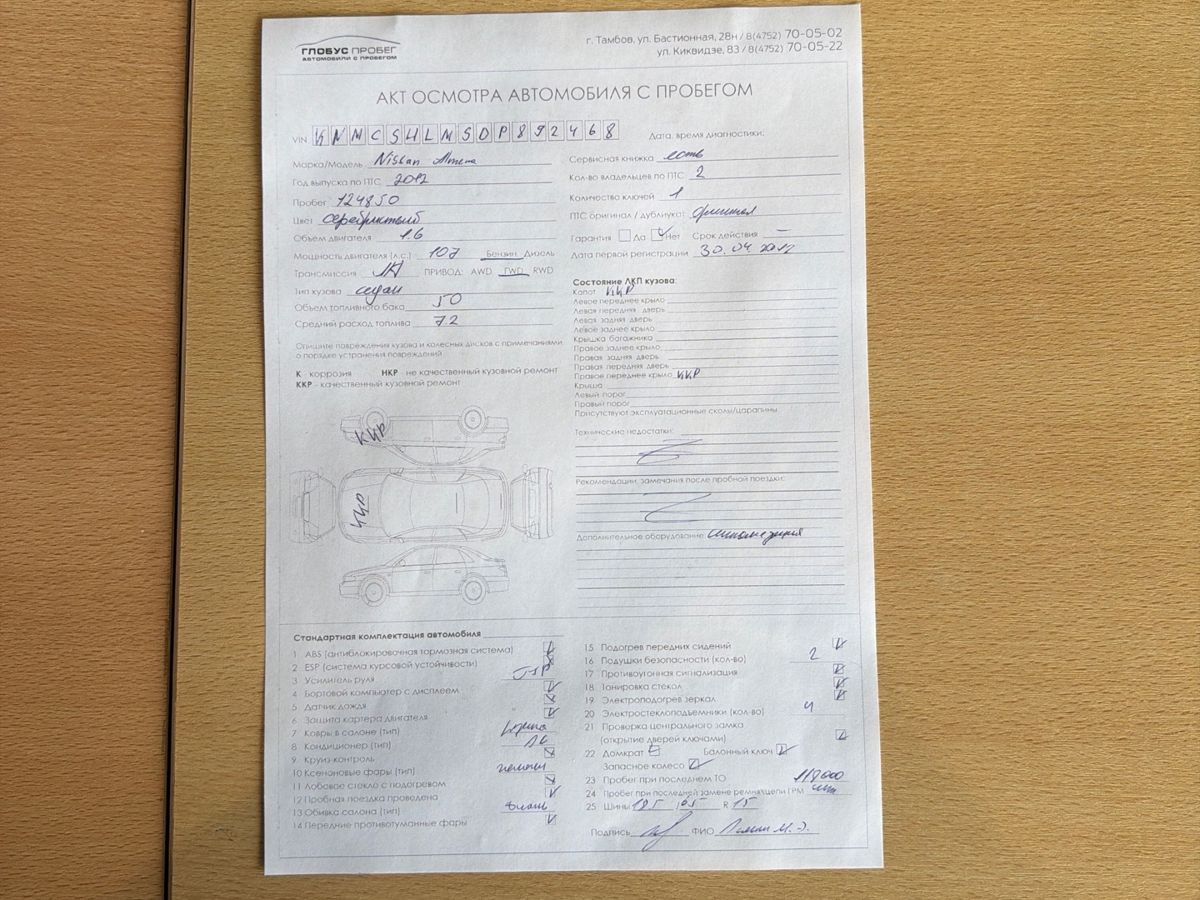 ГЛОБУС ПРОБЕГ
АВТОМОБИЛИ С ПРОБЕГОМ
г. Тамбов, ул. Бастионная, 28н / 8(4752) 70-05-02
ул. Киквидзе, 83 / 8(4752) 70-05-22
АКТ ОСМОТРА АВТОМОБИЛЯ С ПРОБЕГОМ
VIN
Дата, время диагностики:
Марка/Модель Nissan Almera
Год выпуска по ПТС 2012
Пробег 124850
Цвет серебристый
Объем двигателя 1.6
Мощность двигателя (л.с.) 107 Бензин Дизель
Трансмиссия ПРИВОД: AWD FWD RWD
Тип кузова седан
Объем топливного бака 50
Средний расход топлива 7.2
Опишите повреждения кузова и колесных дисков с примечаниями
о порядке устранения повреждений
К - коррозия НКР - не качественный кузовной ремонт
ККР - качественный кузовной ремонт
ККР
ККР
Сервисная книжка есть
Кол-во владельцев по ПТС 2
Количество ключей 1
ПТС оригинал / дубликат:
Гарантия Да Нет Срок действия —
Дата первой регистрации 30.04.2012
Состояние ЛКП кузова:
Капот ККР
Левое переднее крыло
Левая передняя дверь
Левая задняя дверь
Левое заднее крыло
Крышка багажника
Правое заднее крыло
Правая задняя дверь
Правая передняя дверь
Правое переднее крыло ККР
Крыша
Левый порог
Правый порог
Присутствуют эксплуатационные сколы/царапины
Технические недостатки:
Рекомендации, замечания после пробной поездки:
Дополнительное оборудование:
Стандартная комплектация автомобиля
1 ABS (антиблокировочная тормозная система)
2 ESP (система курсовой устойчивости)
3 Усилитель руля
4 Бортовой компьютер с дисплеем
5 Датчик дождя
6 Защита картера двигателя
7 Ковры в салоне (тип)
8 Кондиционер (тип)
9 Круиз-контроль
10 Ксеноновые фары (тип)
11 Лобовое стекло с подогревом
12 Пробная поездка проведена
13 Обивка салона (тип) ткань
14 Передние противотуманные фары
15 Подогрев передних сидений
16 Подушки безопасности (кол-во) 2
17 Противоугонная сигнализация
18 Тонировка стекол
19 Электроподогрев зеркал
20 Электростеклоподъемники (кол-во) 4
21 Проверка центрального замка
(открытие дверей ключами)
22 Домкрат Балонный ключ
Запасное колесо
23 Пробег при последнем ТО 118000
24 Пробег при последней замене ремня/цепи ГРМ
25 Шины 185 / 65 R 15
Подпись ФИО